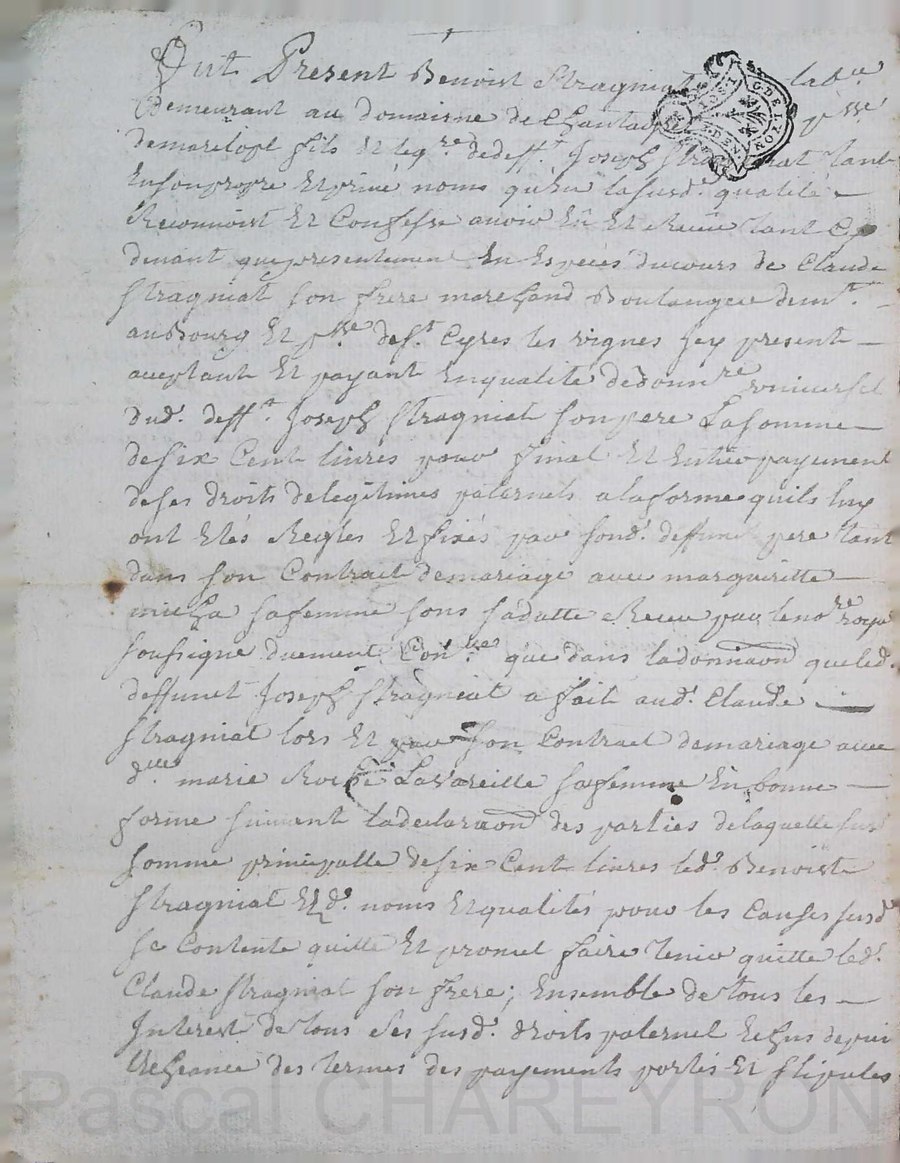 Fut Present Benoist Stragniat lab.r
Demeurant au domaine de p.sse
demarclopt fils et leg.re dedeff.t Joseph Stragniat tant
Ensonpropre Etprivé noms qu'En lasusd.e qualité —
Reconnoist Et Confesse avoir Eû Et Receu tant Cy
devant quepresentement En Especes ducours de Claude
Stragniat son frere marchand Boulanger dem.t —
auBourg Et p.sse des.t Cyres les vignes Jcy present —
acceptant Et payant Enqualité dedonn.re vniversel
dud. deff.t Joseph Stragniat sonpere Lasomme —
desix Cent livres pour final Et Entier payement
deses droits delegitimes paternels alaforme quils luy
ont Etés Reglés Etfixés par sond. deffunct pere tant
dans son Contract demariage avec margueritte —
micha safemme sous sadatte Receu par leno.re royal
soussigné duement Con.lé que dans ladonnaon queled.
deffunct Joseph Stragniat a fait aud. Claude —
Stragniat lors Et par son Contract demariage avec
d.lle marie Roche Lavareille safemme Enbonne —
forme suivant ladeclaraon des parties delaquelle susd
somme principalle desix Cent livres led. Benoist
Stragniat Ezd. noms Etqualités pour les Causes susd
se Contente quitte Et promet faire tenir quitte led.
Claude Stragniat son frere; Ensemble detous les —
Interest detous ses susd. droits paternel Echus depuis
lecheance des termes des payements portés Et stipulés
G. DE LYON
Pascal CHAREYRON